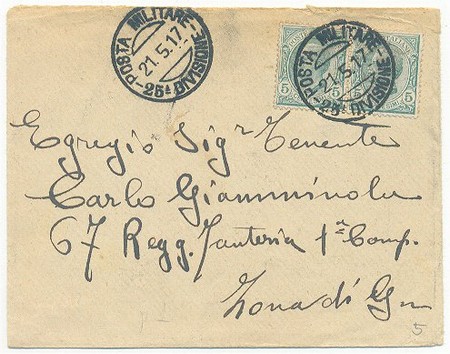 POSTA MILITARE - 25ª DIVISIONE
21.5.17
POSTA MILITARE - 25ª DIVISIONE
21.5.17
5 5 5
Egregio Sigʳ Tenente
Carlo
67 Regg. Fanteria 1ª Comp.
Zona di
5